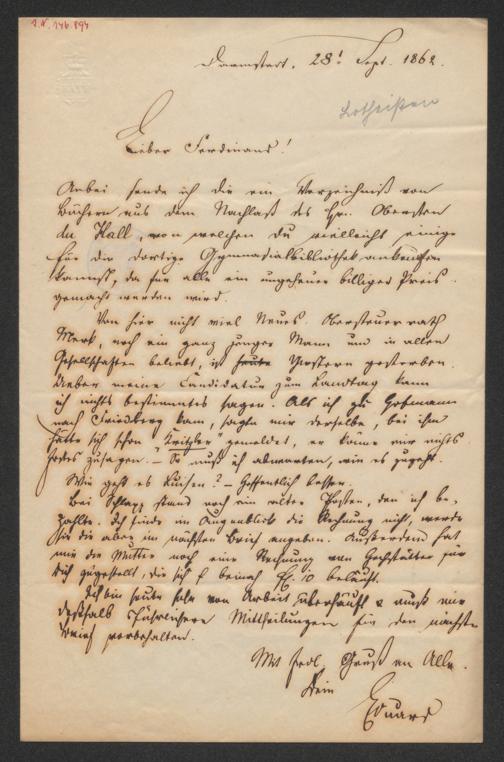 I.N. 146.894
Darmstadt. 28t Sept. 1862.
Lotheißen
Lieber Ferdinand!
Anbei sende ich dir ein Verzeichniß von
Büchern aus dem Nachlaß des Hr. Obersten
du Hall, von welchen du vielleicht einige
für die dortige Gymnasialbibliothek ankaufen
kannst, da für alle ein ungeheuer billiger Preis
gemacht werden wird.
Von hier nicht viel Neues. Obersteuerrath
Merk, noch ein ganz junger Mann und in allen
Gesellschaften beliebt, ist heute gestern gestorben.
Ueber meine Candidatur zum Landtag kann
ich nichts bestimmtes sagen. Als ich zu Hofmann
nach Friedberg kam, sagte mir derselbe, bei ihm
hätte sich schon gemeldet, er könne mir nichts
zusagen. – So muß ich abwarten, wie es zugeht.
Wie geht es Luisen? – Hoffentlich besser.
Bei Schlapp stand noch ein alter Posten, den ich be-
zahlte. Ich finde im Augenblick die Rechnung nicht, werde
sie dir aber im nächsten Brief angeben. Außerdem hat
mir die Mutter noch eine Rechnung von Hochstätter für
dich zugestellt, die sich f beinah fl. 10 beläuft.
Ich bin heute sehr von Arbeit überhäuft & muß mir
deßhalb führlichere Mittheilungen für den nächsten
Brief vorbehalten.
Mit frdl. Gruß an Alle.
Dein
Eduard